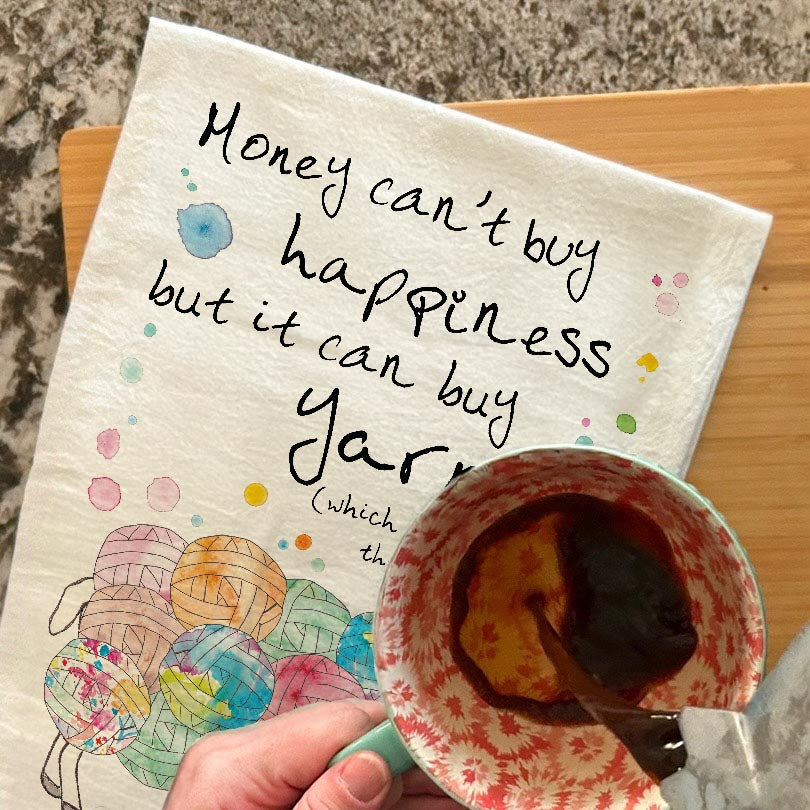 Money can't buy
happiness
but it can buy
yarn
(which
th